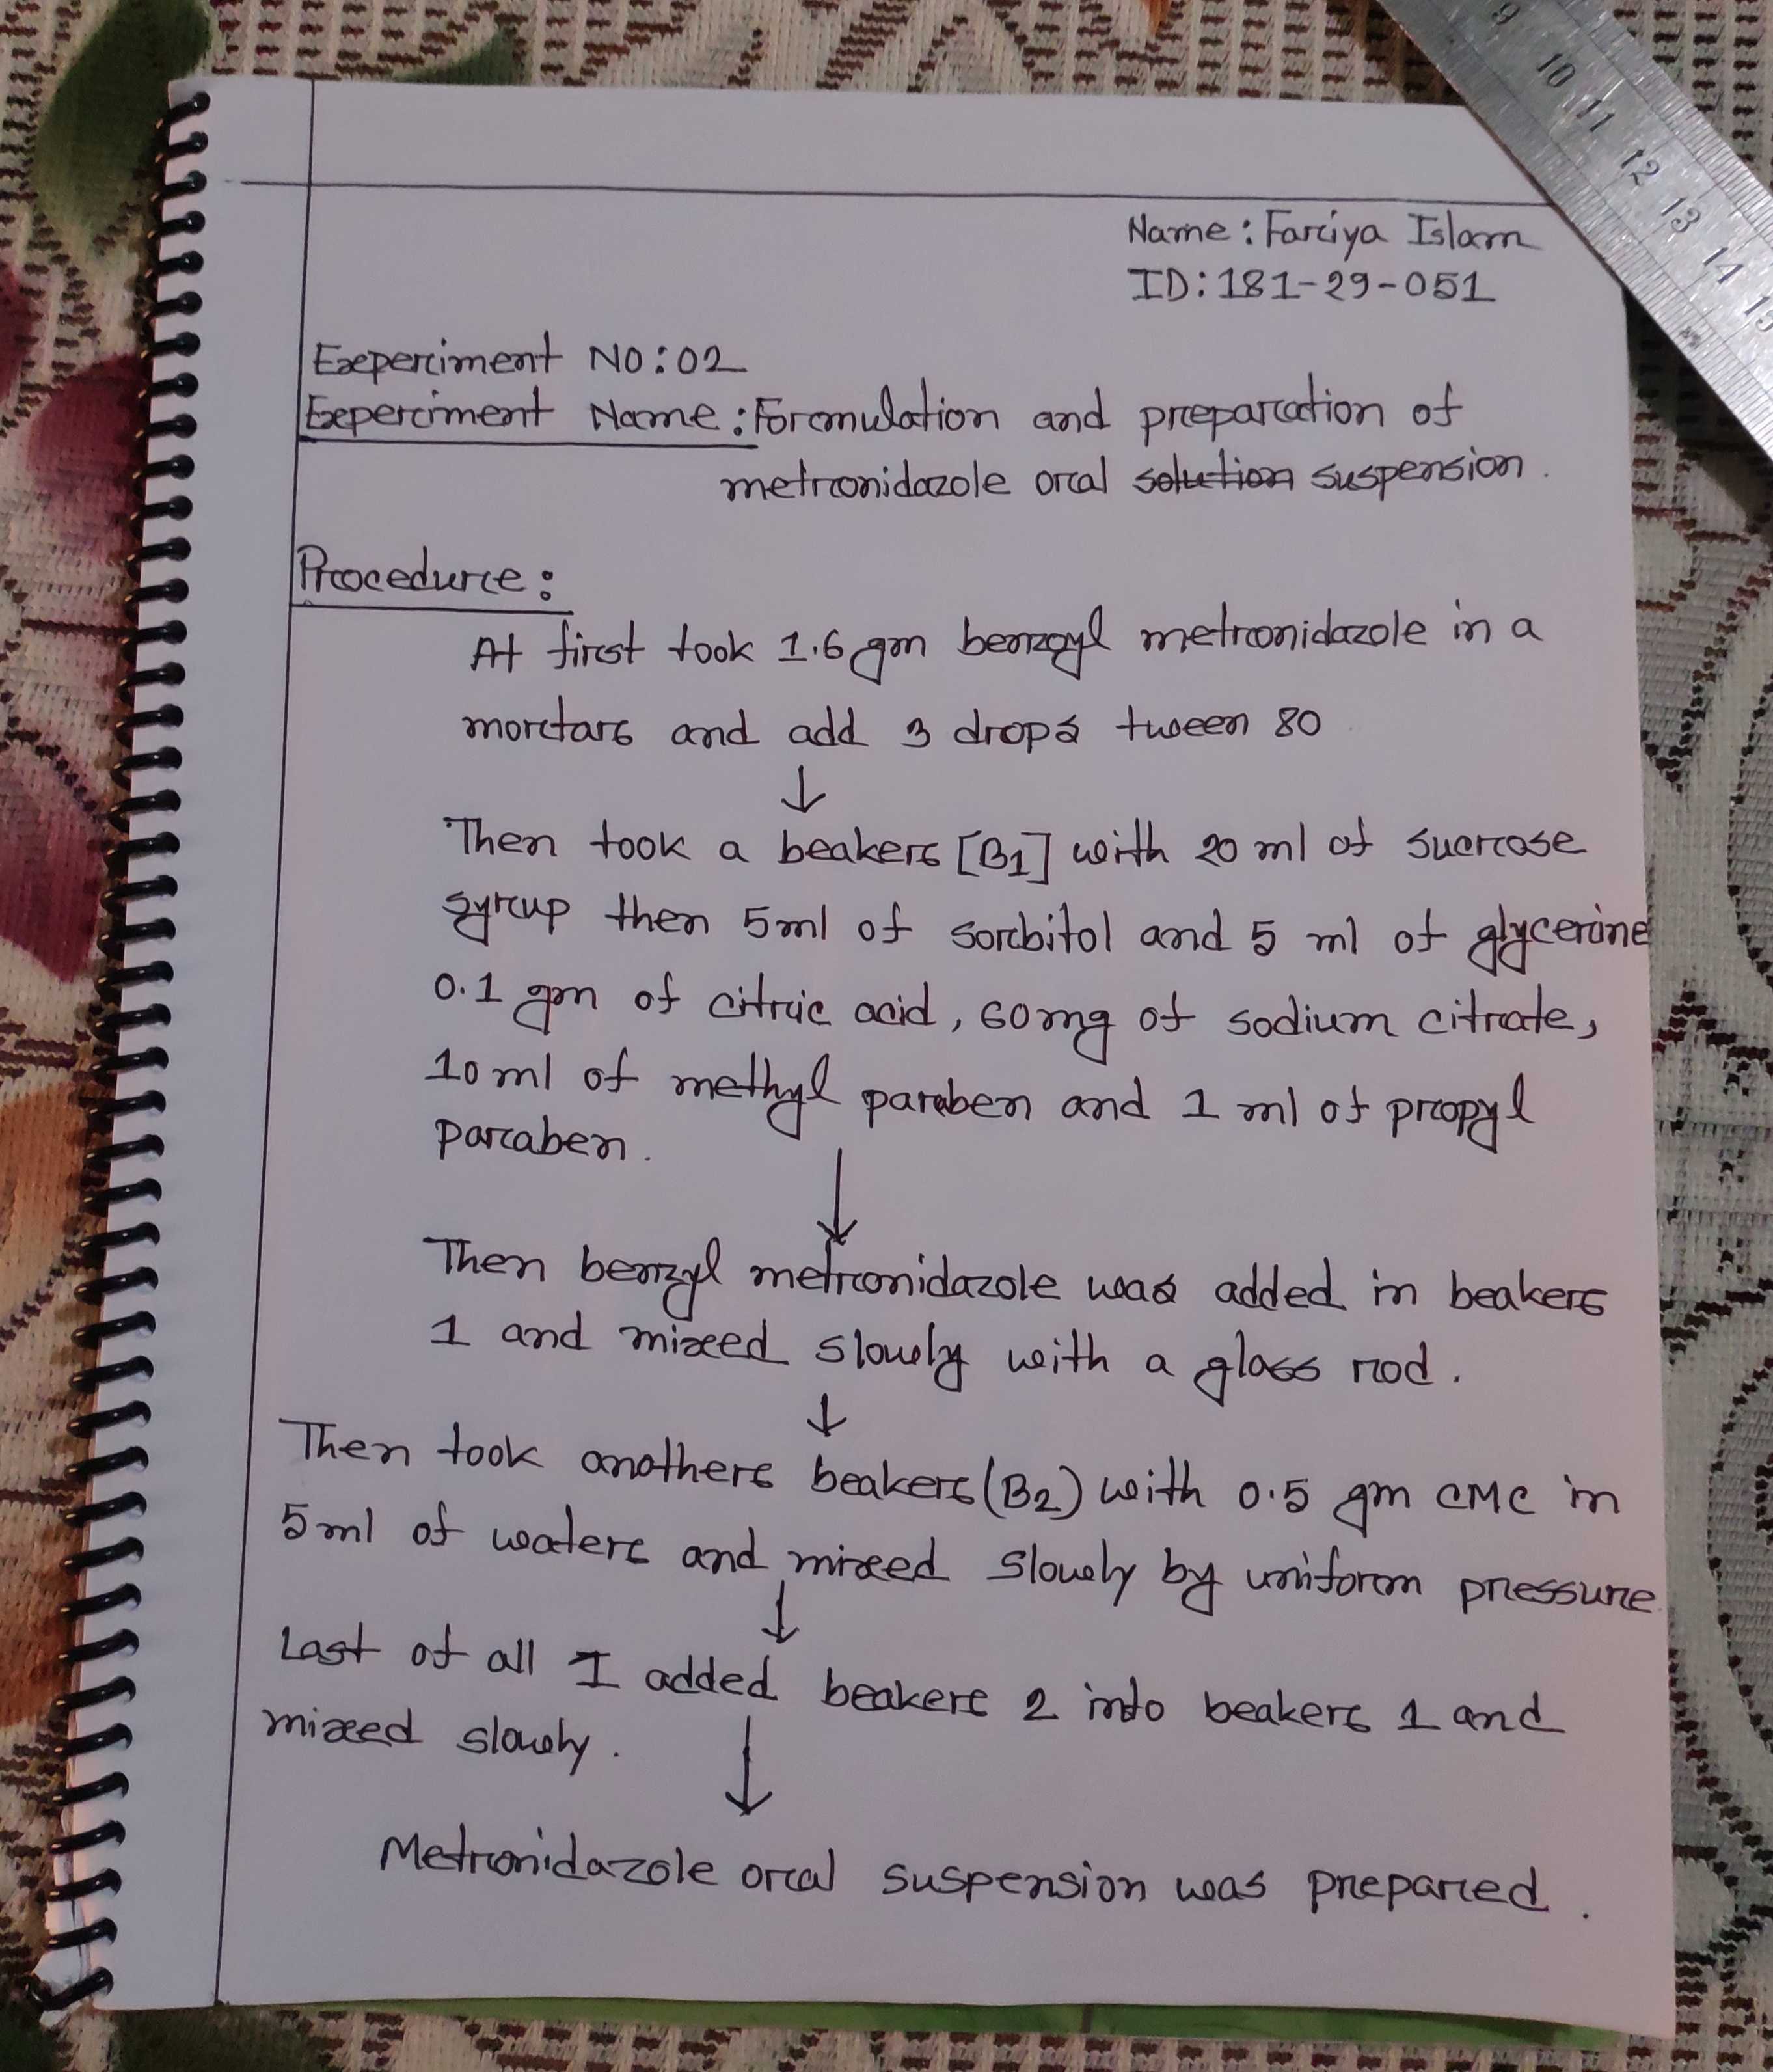 Name: Fariya Islam
ID: 181-29-051
Experiment NO: 02
Experiment Name: Formulation and preparation of
metronidazole oral solution suspension.
Procedure:
At first took 1.6 gm benzoyl metronidazole in a
mortar and add 3 drops tween 80
↓
Then took a beaker [B1] with 20 ml of sucrose
syrup then 5ml of sorbitol and 5 ml of glycerine
0.1 gm of citric acid, 60mg of sodium citrate,
10ml of methyl paraben and 1 ml of propyl
paraben.
↓
Then benzyl metronidazole was added in beaker
1 and mixed slowly with a glass rod.
↓
Then took another beaker (B2) with 0.5 gm CMC in
5ml of water and mixed slowly by uniform pressure.
↓
Last of all I added beaker 2 into beaker 1 and
mixed slowly.
↓
Metronidazole oral suspension was prepared.
9 10 11 12 13 14 15